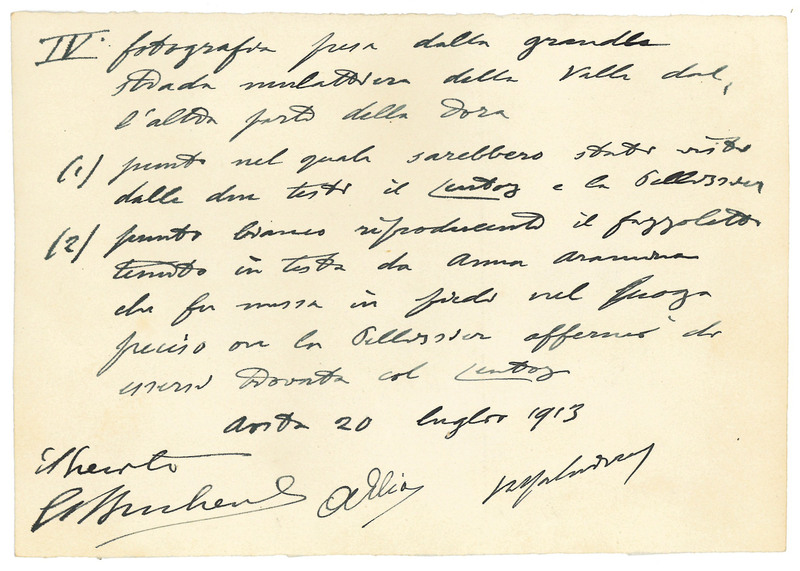 IV. fotografia presa dalla grande
strada mulattiera della Valle dal,
l'altra parte della Dora
(1) punto nel quale sarebbero stati visti
dalle due testi il Centoz e la Pellissier
(2) punto bianco riproducente il fazzoletto
tenuto in testa da Anna
che fu messa in piedi nel luogo
preciso ove la Pellissier affermò di
essersi trovata col Centoz
Aosta 20 luglio 1913
il perito